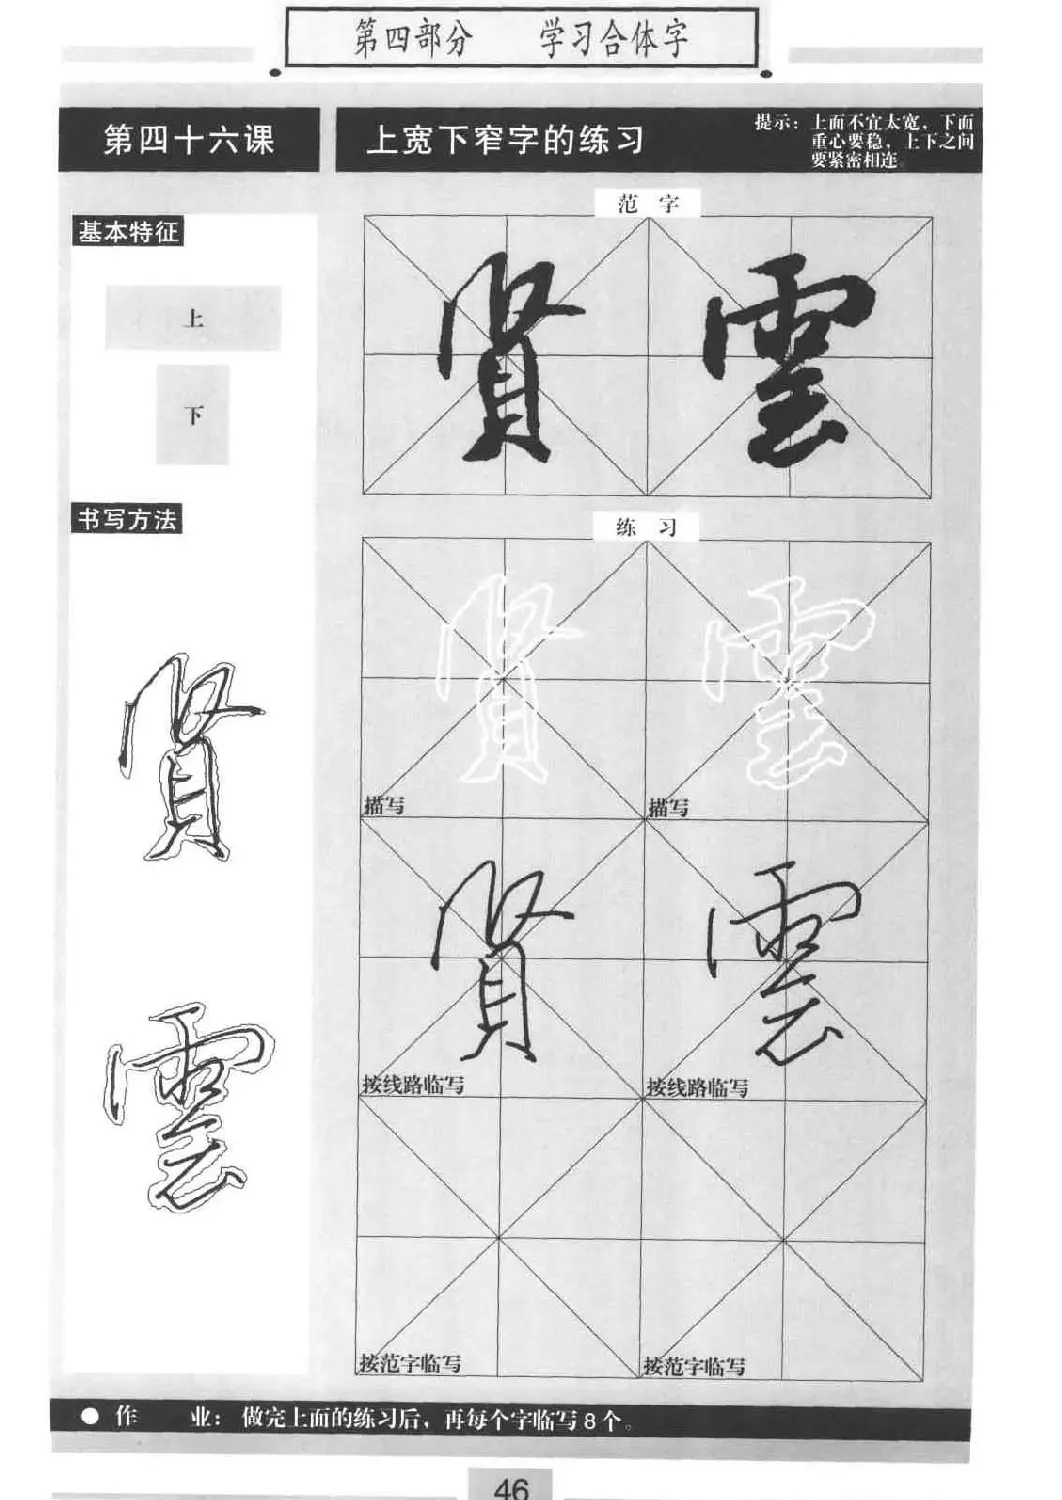 第四部分　学习合体字
第四十六课
上宽下窄字的练习
提示：上面不宜太宽，下面
重心要稳，上下之间
要紧密相连。
基本特征
上
下
书写方法
賢
雲
范　字
賢　雲
练　习
賢　雲
描写　描写
賢　雲
按线路临写　按线路临写
按范字临写　按范字临写
●作　业：做完上面的练习后，再每个字临写8个。
46